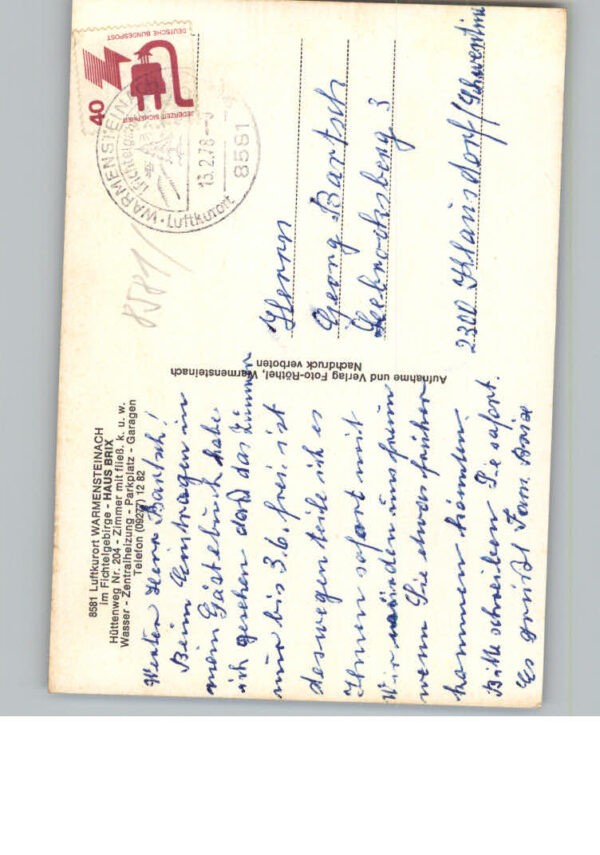 8581 Luftkurort WARMENSTEINACH
im Fichtelgebirge - HAUS BRIX
Hüttenweg Nr. 204 - Zimmer mit fließ. k. u. w.
Wasser - Zentralheizung - Parkplatz - Garagen
Telefon (09277) 12 82
Werter Herr Bartsch!
Beim Eintragen in
mein Gästebuch habe
ich gesehen daß das Zimmer
nur bis 3.6. frei ist
deswegen teile ich es
Ihnen sofort mit
Wir würden uns freuen
wenn Sie etwas früher
kommen könnten
Bitte schreiben Sie sofort.
Es grüßt Fam. Brix
Aufnahme und Verlag Foto-Röthel, Warmensteinach
Nachdruck verboten
8581/
DEUTSCHE BUNDESPOST
JEDERZEIT SICHERHEIT
40
WARMENSTEINACH
Fichtelgebirge
13.2.78
8581
Luftkurort
Herrn
Georg Bartsch
3
2300 Klausdorf/Schwentine